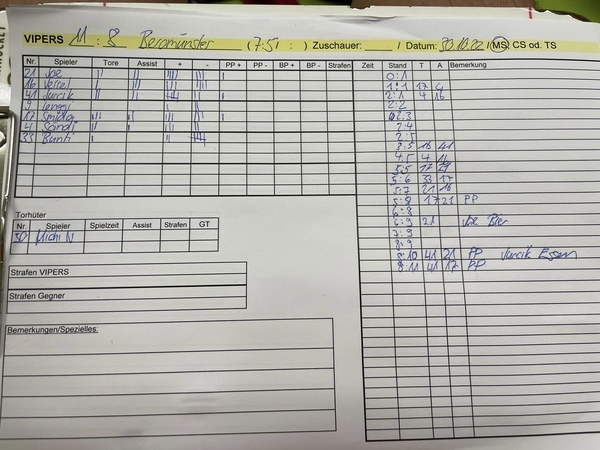 VIPERS 11 : 8 Beromünster (7:5 : ) Zuschauer: / Datum: 30.10.22 / MS CS od. TS
Nr. Spieler Tore Assist + - PP + PP - BP + BP - Strafen
21 Joe
16
41 Jurcik
9
17 Smidla
4 Sandi
33 Bünti
Torhüter
Nr. Spieler Spielzeit Assist Strafen GT
30 Michi N
Strafen VIPERS
Strafen Gegner
Bemerkungen/Spezielles:
Zeit Stand T A Bemerkung
0:1
1:1 17 4
2:1 4 16
2:2
2:3
2:4
2:5
3:5 16 41
4:5 4 16
5:5 17 21
5:6 33 17
5:7 21 16
5:8 17 21 PP
6:8
6:9 21 Joe Bier
7:9
8:9
8:10 41 21 PP Jurcik Essen
8:11 41 17 PP